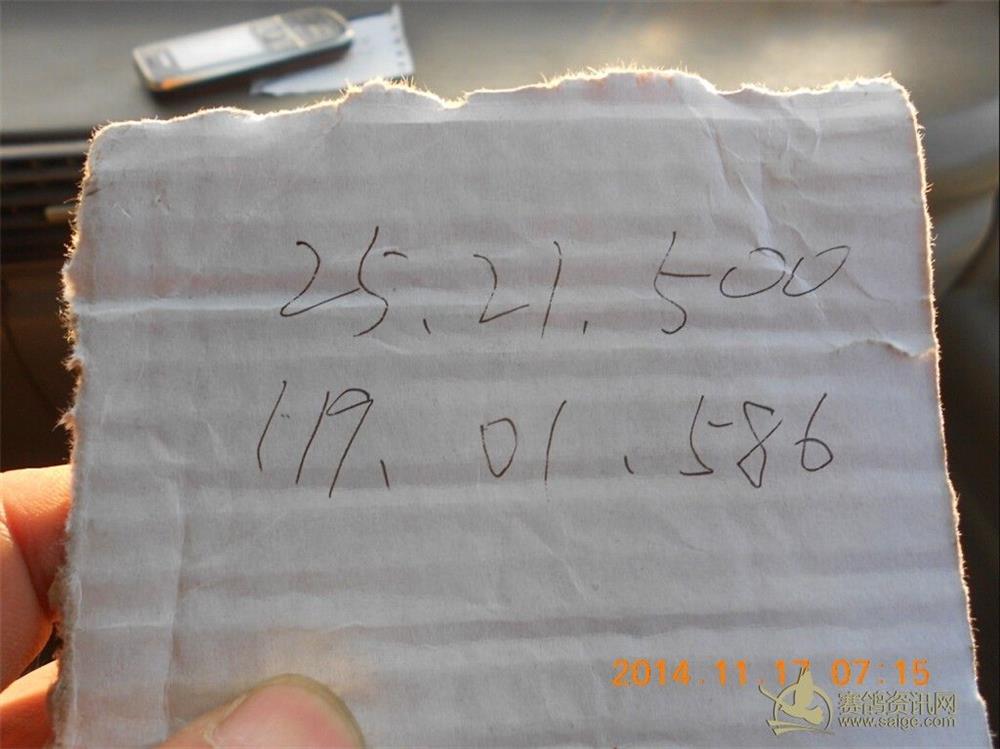 25.21.500
119.01.586
2014.11.17 07:15
赛鸽资讯网
www.saige.com